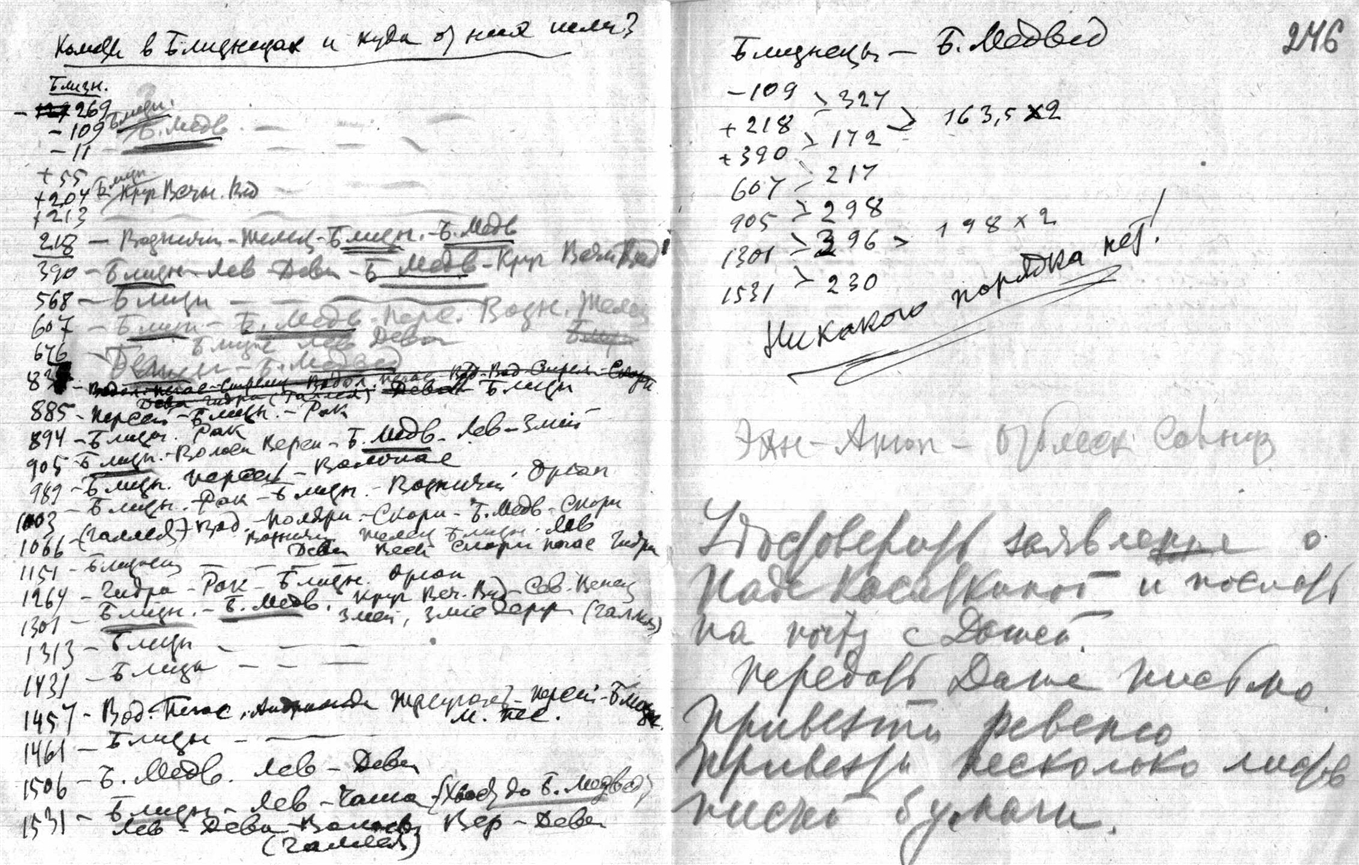 Кометы в Близнецах и куда от них шли?
Близн.
- 269
- 109 Близн.
Б. Медв.
- 11
+ 55
+ 204 Близн
Круг Вечн. Вид
+ 213
218 - Возничий - Телец - Близн. - Б. Медв
390 - Близн - Лев - Дева - Б Медв - Круг Вечн Вид
568 - Близн
607 - Близн - Б. Медв - Перс. Возн. Телец
Близн Лев Дева
676
Б. Медвед
Дева Близн
885 - Персей - Близн. - Рак
894 - Близн. Рак
905 - Близн. - Волосы Верен - Б. Медв - Лев - Змей
989 - Близн. Персей - Волопас
1003 - Близн. Рак - Близн. - Возничий, Орион
1066 (Галлея) Вод. - Полярн. - Скорп - Б. Медв - Скорп
Возничий Телец Близн. Лев
Дева Весы Скорп Пегас Гидра
1151 - Близнец
1264 - Гидра - Рак - Близн. Орион
1301 - Близн. - Б. Медв. Круг Веч. Вид - Сев. Венец
Змей, Змиедерж (Галлея)
1313 - Близн
1431 - Близн
1457 - Вод. Пегас, Андромеда Треугол - Персей - Близн
М. Пес.
1461 - Близн
1506 - Б. Медв. Лев - Дева
1531 - Близн - Лев - Чаша (Хвост до Б. Медвед)
Лев - Дева - Волосы Вер - Дева
(Галлея)
246
Близнецы - Б. Медвед
- 109 > 327
+ 218 > 172 > 163,5 x 2
+ 390
607 > 217
905 > 298
1301 > 396 > 198 x 2
1531 > 230
Никакого порядка нет!
Удостоверить заявление о
Наде и послать
на почту с Дашей.
Передать Даше письмо.
Привезти ревеню
Привезти несколько листов
писчей бумаги.